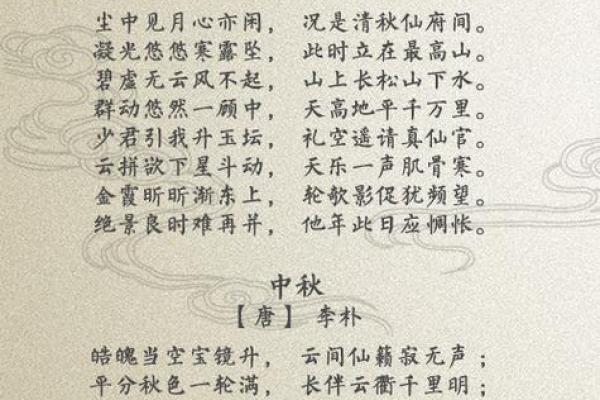 尘中见月心亦闲， 况是清秋仙府间。
凝光悠悠寒露坠， 此时立在最高山。
碧虚无云风不起， 山上长松山下水。
群动悠然一顾中， 天高地平千万里。
少君引我升玉坛， 礼空遥请真仙官。
云拼欲下星斗动， 天乐一声肌骨寒。
金霞昕昕渐东上， 轮欹影促犹频望。
绝景良时难再并， 他年此日应惆怅。
中秋
【唐】 李朴
皓魄当空宝镜升， 云间仙籁寂无声；
平分秋色一轮满， 长伴云衢千里明；